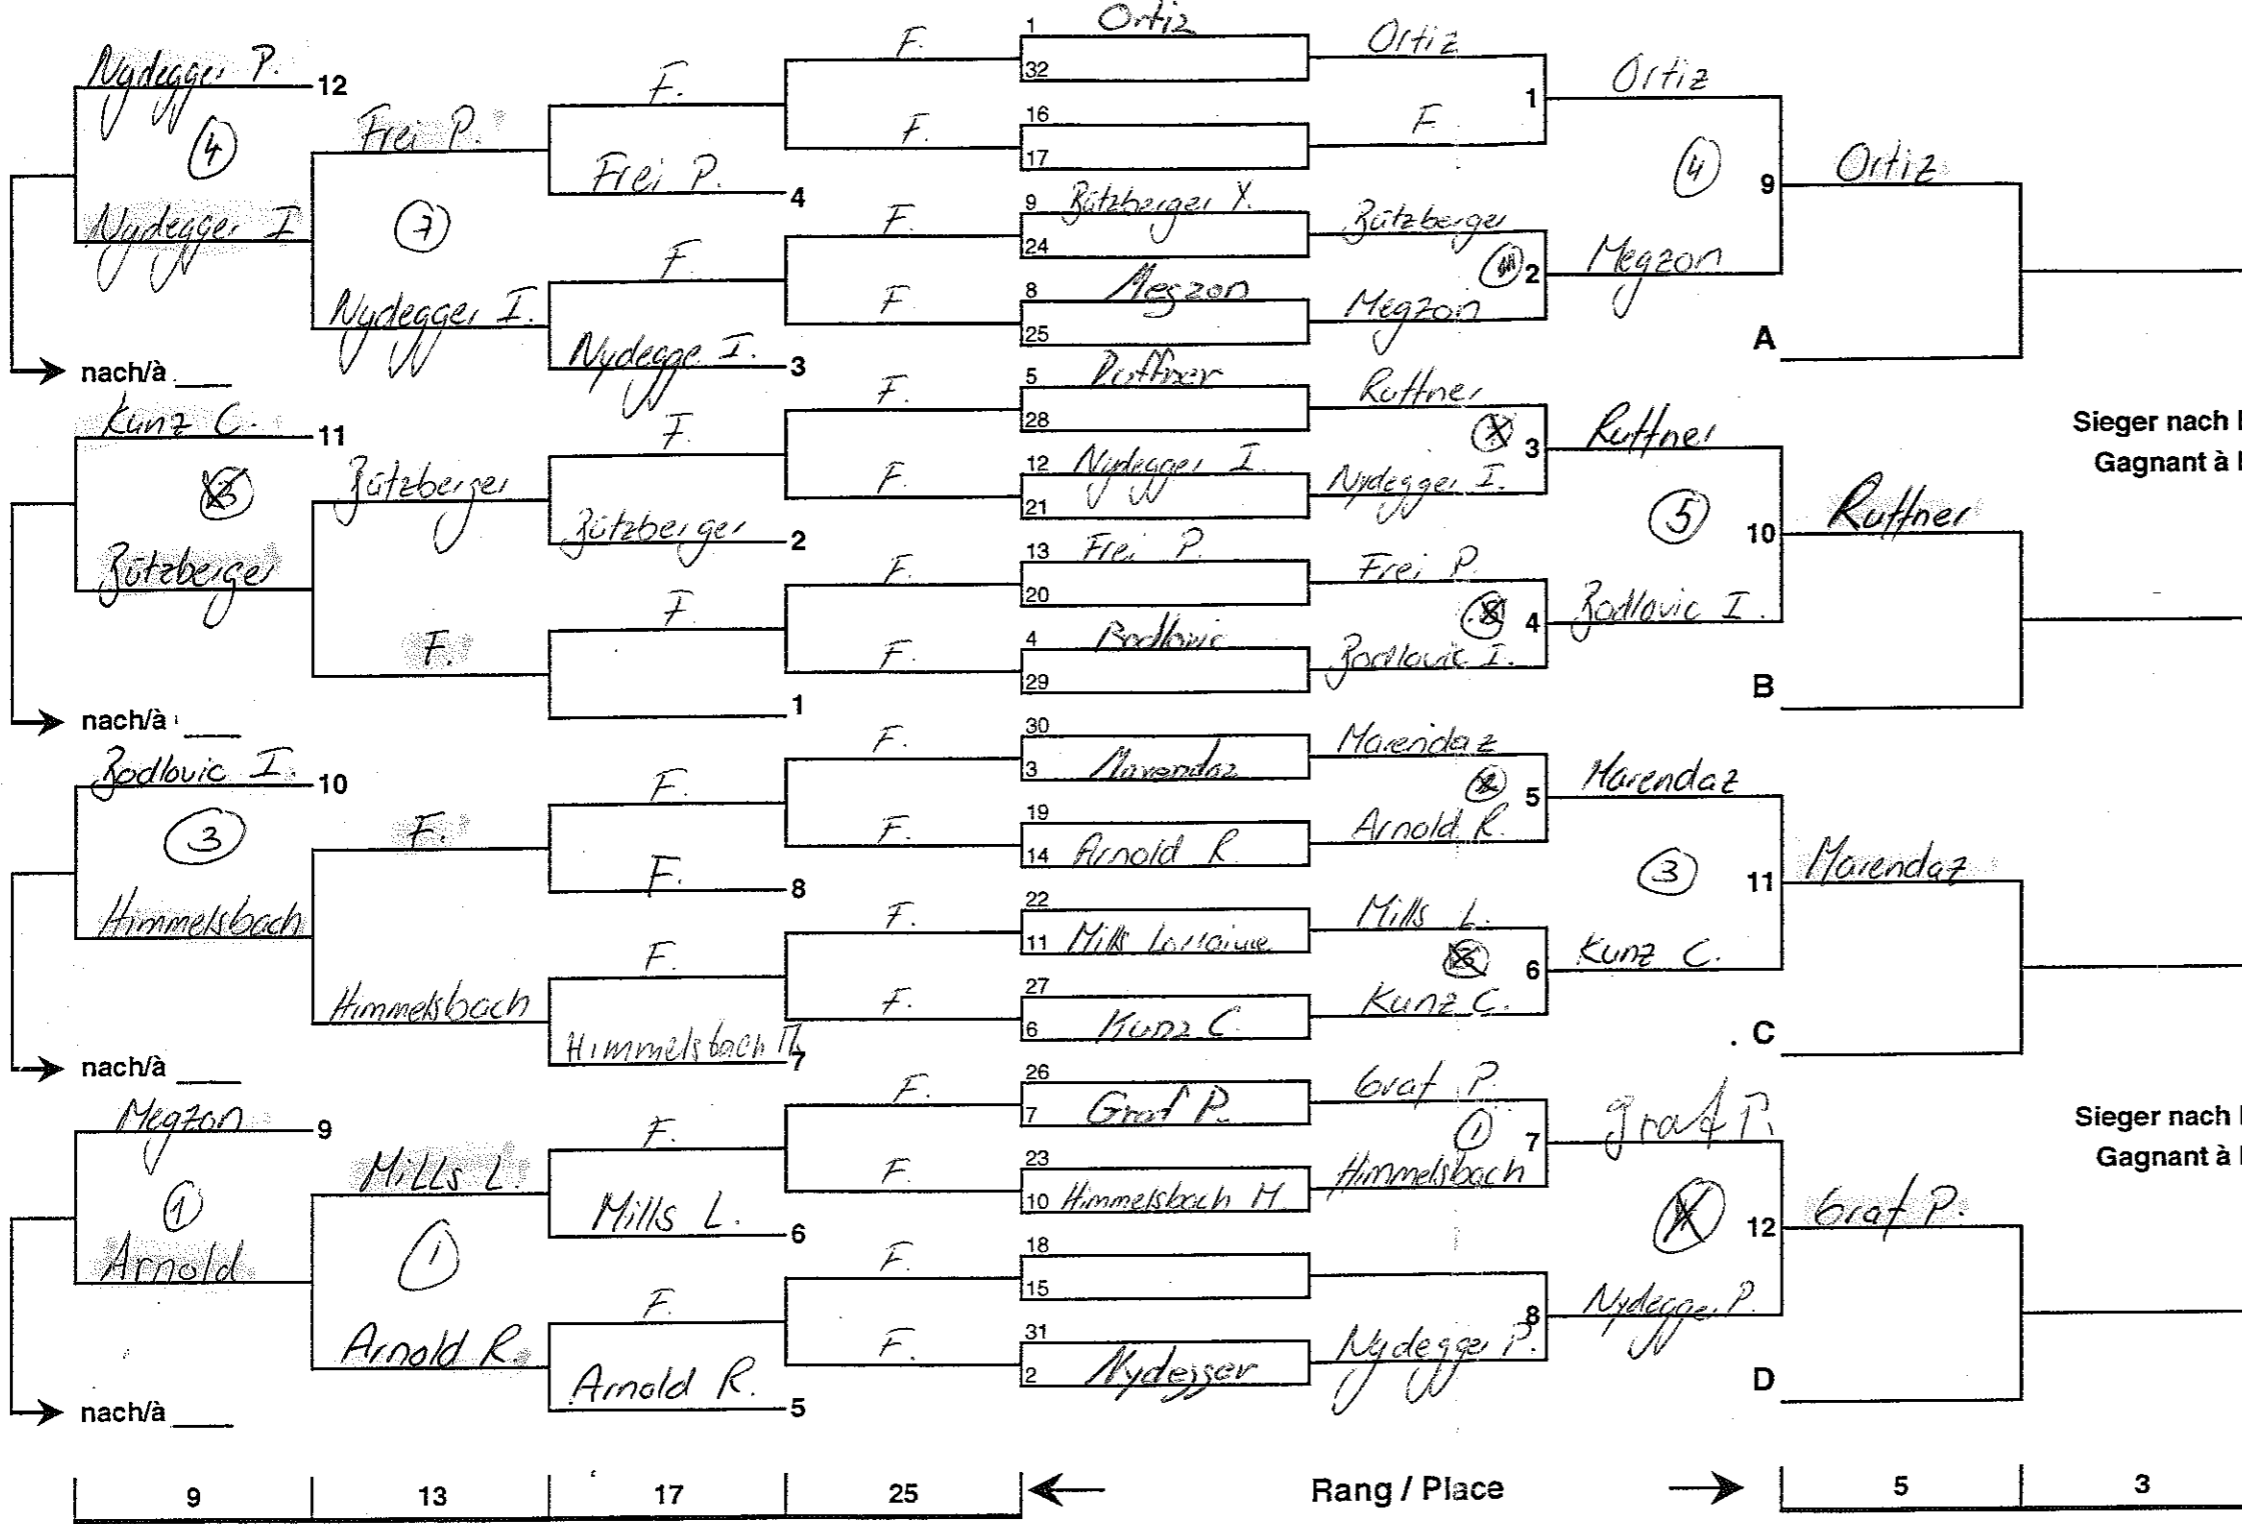 Nydegger P. 12
4
Nydegger I
nach/à ___
Kunz C. 11
Bützberger
nach/à ___
Bodlovic I. 10
3
Himmelsbach
nach/à ___
Megzon 9
1
Arnold
nach/à ___
Frei P.
7
Nydegger I.
Bützberger
F.
F.
Himmelsbach
Mills L.
1
Arnold R.
F.
Frei P. 4
F.
Nydegge I. 3
F.
Bützberger 2
F.
1
F.
F. 8
F.
Himmelsbach M. 7
F.
Mills L. 6
F.
Arnold R. 5
F.
F.
F.
F.
F.
F.
F.
F.
F.
F.
F.
F.
F.
F.
F.
F.
1 Ortiz
32
16
17
9 Bützberger Y.
24
8 Megzon
25
5 Ruffner
28
12 Nydegger I.
21
13 Frei P.
20
4 Bodlovic
29
30
3 Marendaz
19
14 Arnold R
22
11 Mills Lorraine
27
6 Kunz C.
26
7 Graf P.
23
10 Himmelsbach M.
18
15
31
2 Nydegger
Ortiz
1
F
Bützberger
2
Megzon
Ruffner
3
Nydegger I.
Frei P.
4
Bodlovic I.
Marendaz
5
Arnold R.
Mills L.
6
Kunz C.
Graf P.
1 7
Himmelsbach
8
Nydegger P.
Ortiz
4 9
Megzon
A
Ruffner
5 10
Bodlovic I.
B
Marendaz
3 11
Kunz C.
C
Graf P.
12
Nydegger P.
D
Ortiz
Ruffner
Marendaz
Graf P.
Sieger nach
Gagnant à
Sieger nach
Gagnant à
9 13 17 25 Rang / Place 5 3